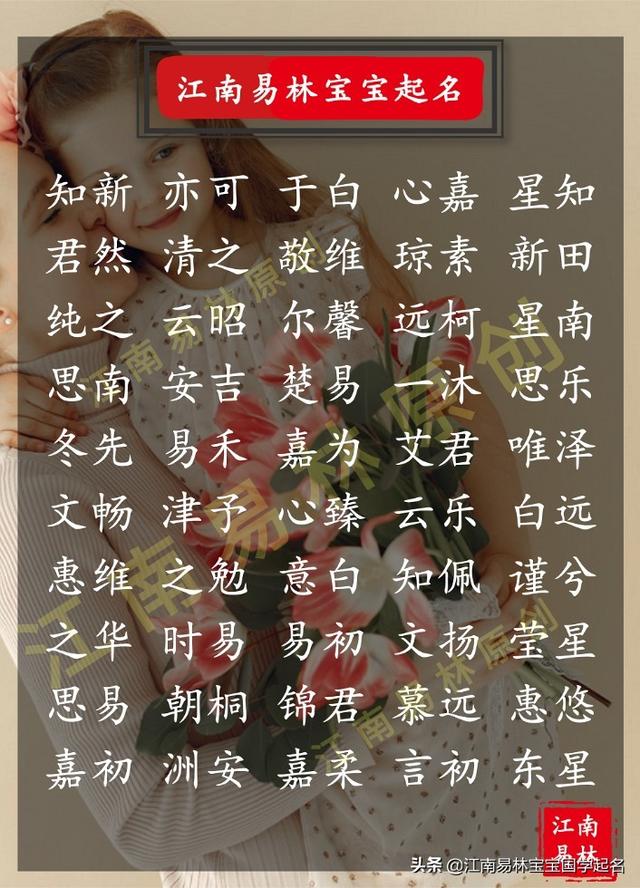 江南易林宝宝起名
知新 亦可 于白 心嘉 星知
君然 清之 敬维 琼素 新田
纯之 云昭 尔馨 远柯 星南
思南 安吉 楚易 一沐 思乐
冬先 易禾 嘉为 艾君 唯泽
文畅 津予 心臻 云乐 白远
惠维 之勉 意白 知佩 谨兮
之华 时易 易初 文扬 莹星
思易 朝桐 锦君 慕远 惠悠
嘉初 洲安 嘉柔 言初 东星
江南易林原创
江南易林原创
江南易林原创
江南
易林
头条 @江南易林宝宝国学起名